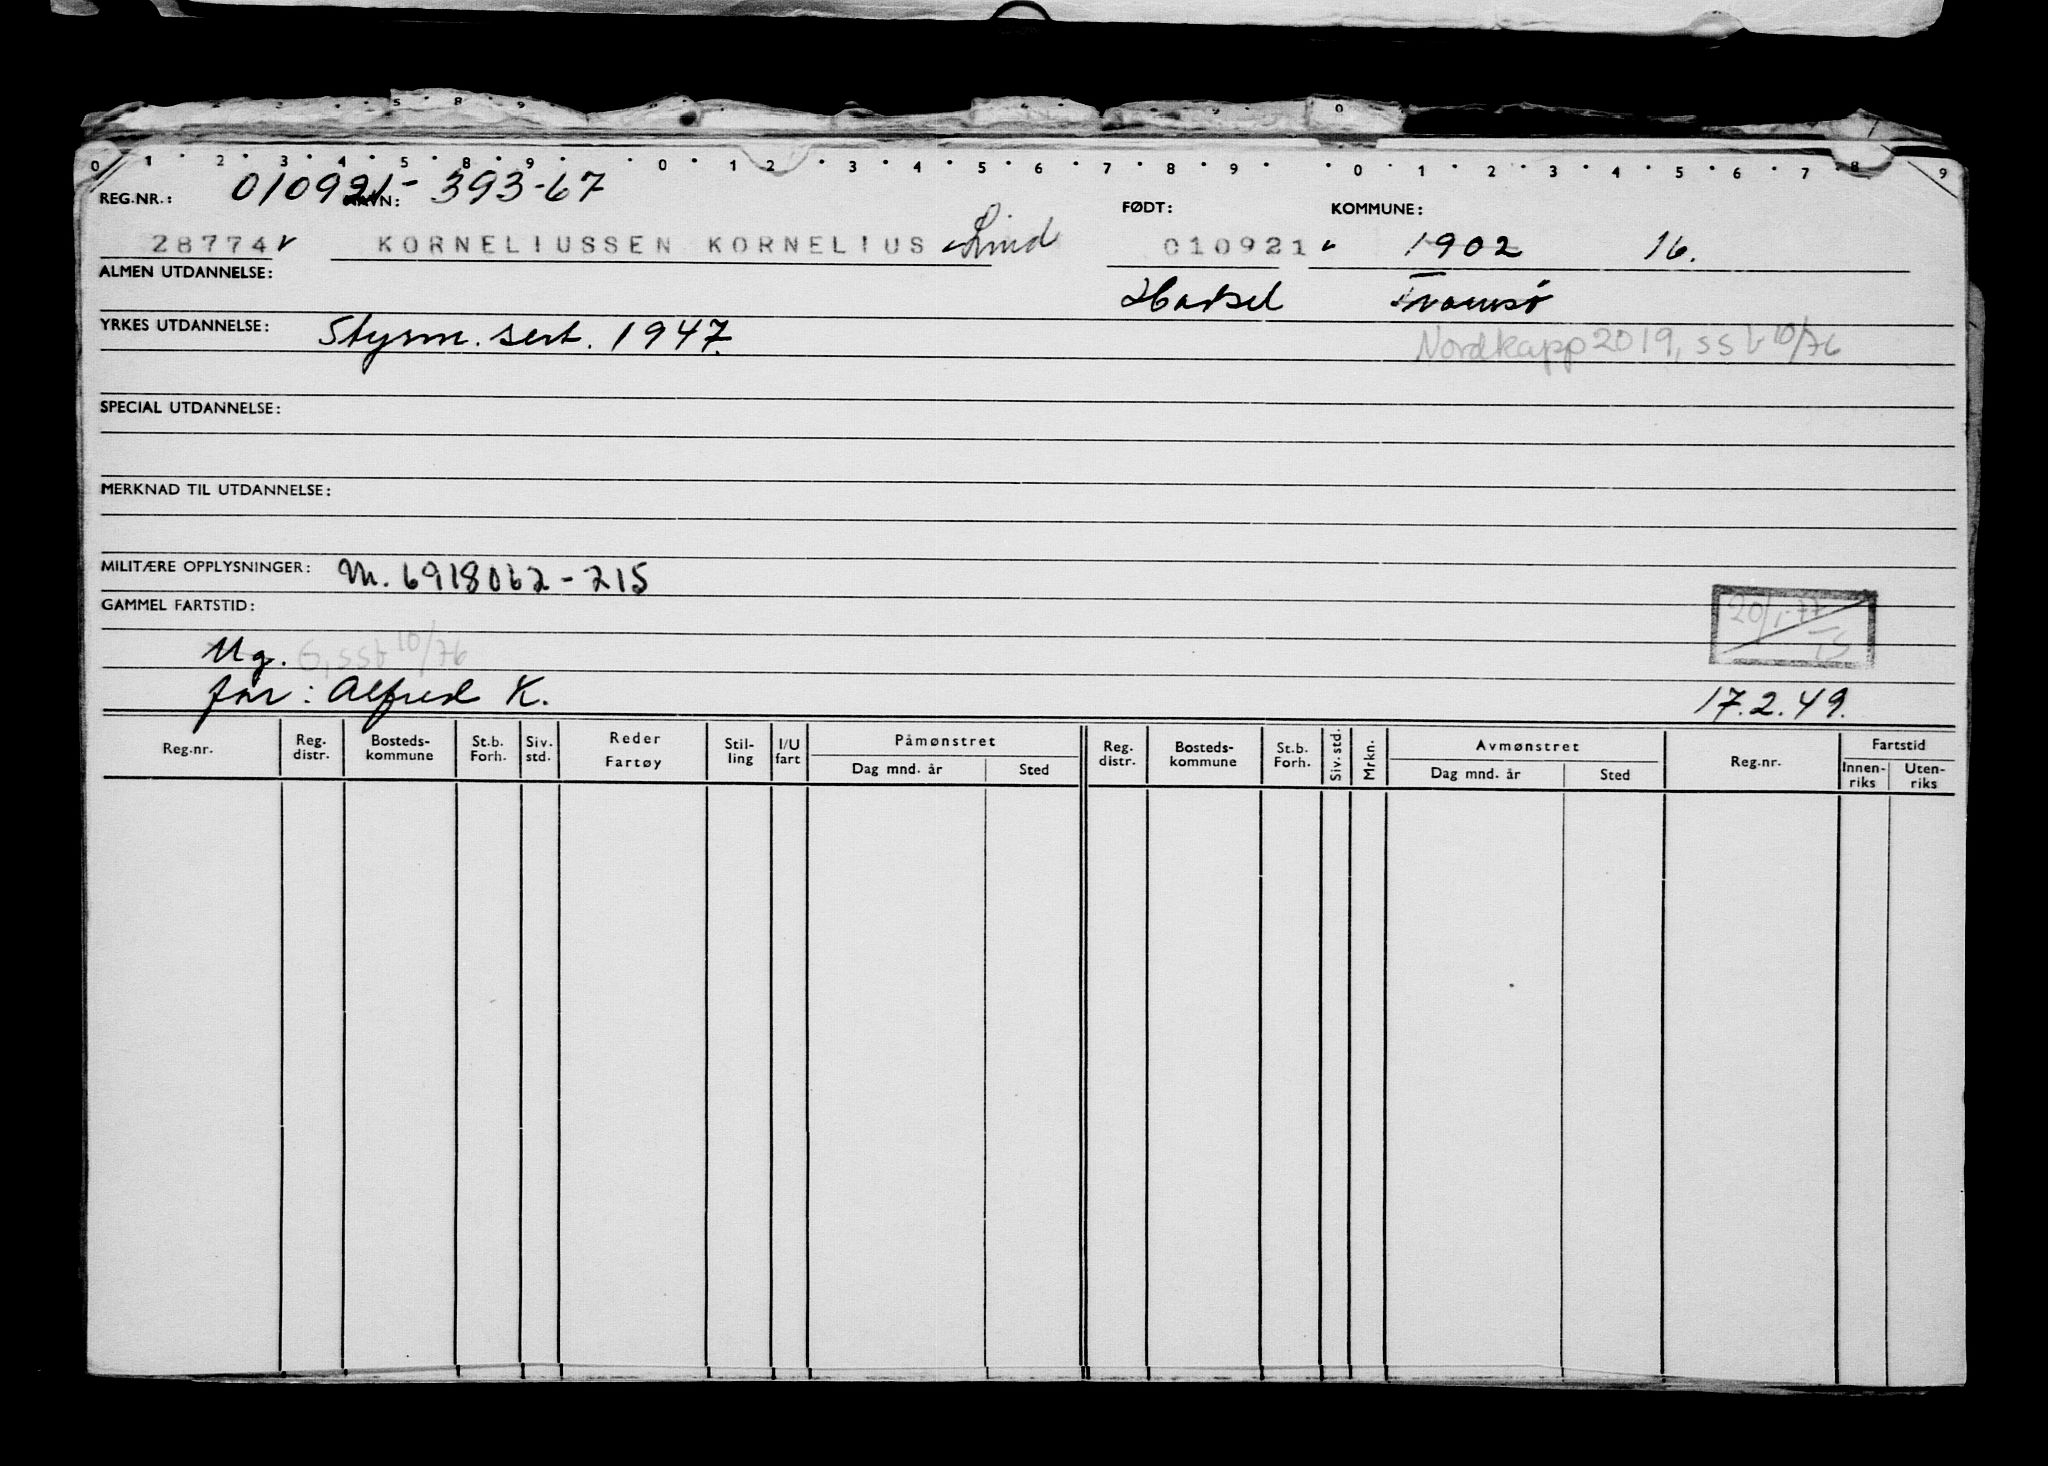 0 1 2 3 4 5 8 9 0 1 2 3 4 5 6 7 8 9 0 1 2 3 4 5 6 7 8 9
REG.NR.: 010921-393-67 NAVN: FØDT: KOMMUNE:
28774 KORNELIUSSEN KORNELIUS Lind 010921 1902 16.
ALMEN UTDANNELSE: Hadsel Tromsø
YRKES UTDANNELSE: Styrm. sert. 1947. Nordkapp 2019, ssb 10/76
SPECIAL UTDANNELSE:
MERKNAD TIL UTDANNELSE:
MILITÆRE OPPLYSNINGER: M. 6918062-215
GAMMEL FARTSTID: 20/1-77
Ug. G, ssb 10/76
far: Alfred K. 17.2.49.
Reg.nr. Reg. distr. Bosteds-kommune St.b. Forh. Siv. std. Reder Fartøy Stil-ling I/U fart Påmønstret Dag mnd. år Sted Reg. distr. Bosteds-kommune St.b. Forh. Siv. std. Mrkn. Avmønstret Dag mnd. år Sted Reg.nr. Fartstid Innen-riks Uten-riks